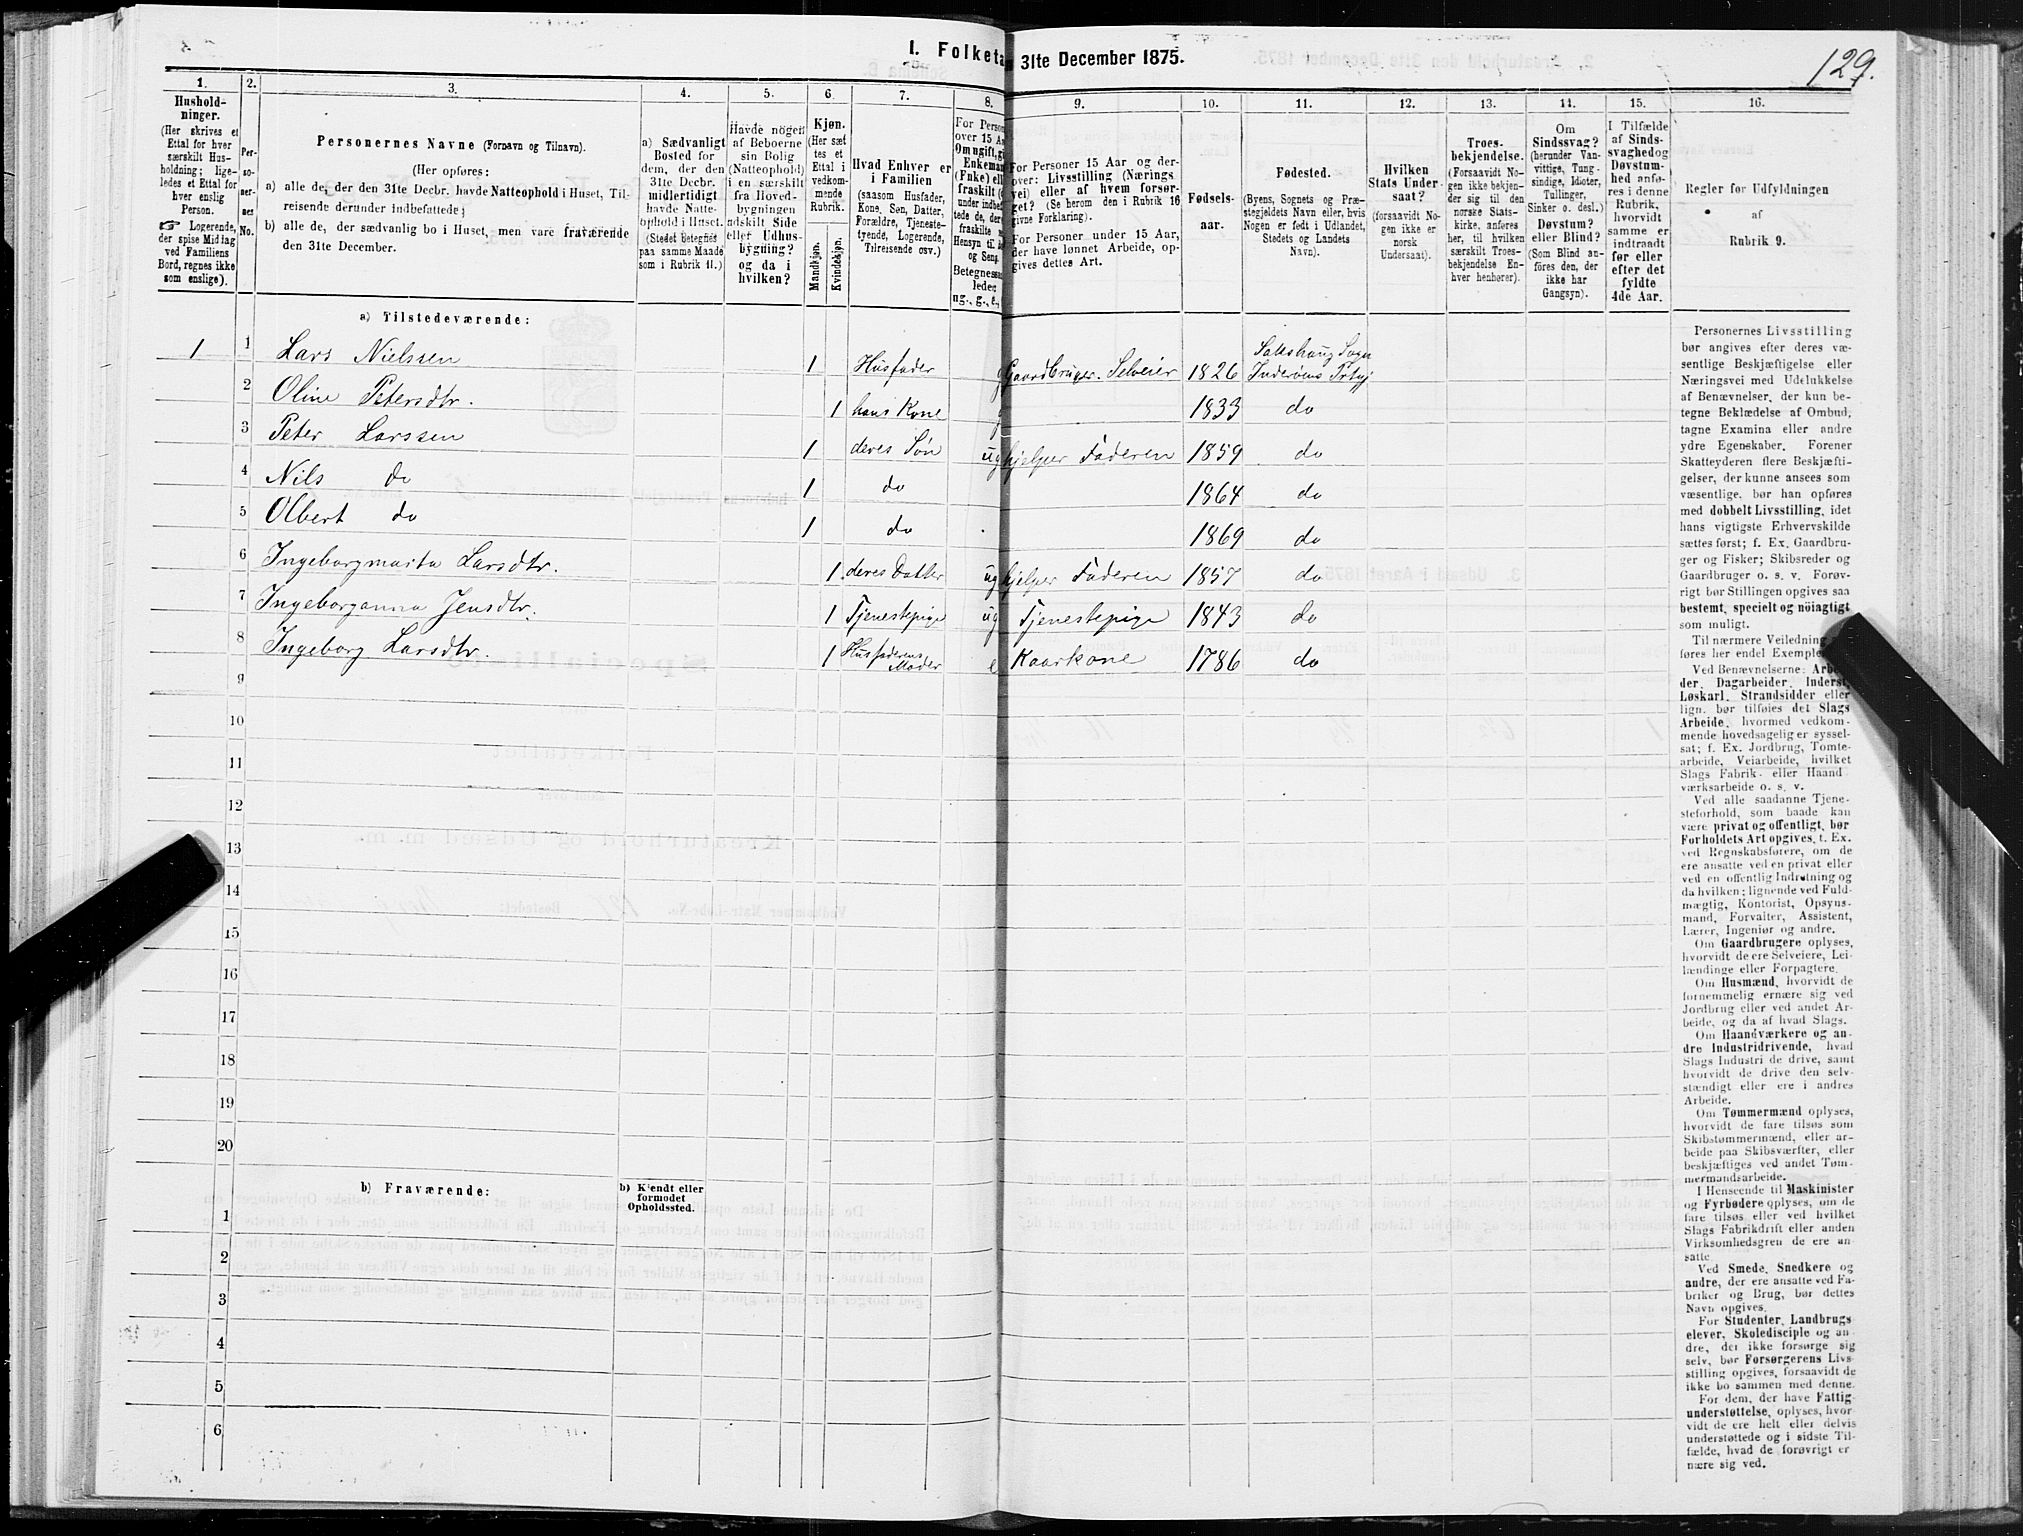 129.
I. Folketa 31te December 1875.
1. 2. 3. 4. 5. 6. 7. 8. 9. 10. 11. 12. 13. 14. 15. 16.
Hushold-
ninger.
(Her skrives et
Ettal for hver
særskilt Hus-
holdning; lige-
ledes et Ettal for
hver enslig
Person.
☞ Logerende,
der spise Middag
ved Familiens
Bord, regnes ikke
som enslige).
Per-
so-
ner-
nes
No.
Personernes Navne (Fornavn og Tilnavn).
(Her opføres:
a) alle de, der den 31te Decbr. havde Natteophold i Huset, Til-
reisende derunder indbefattede;
b) alle de, der sædvanlig bo i Huset, men vare fraværende
den 31te December.
a) Sædvanligt
Bosted for
dem, der den
31te Decbr.
midlertidigt
havde Natte-
ophold i Huset.
(Stedet betegnes
paa samme Maade
som i Rubrik 11.)
Havde nogen
af Beboerne
sin Bolig
(Natteophold)
i en særskilt
fra Hoved-
bygningen
adskilt Side
eller Udhus-
bygning?
og da i
hvilken?
Kjøn.
(Her sæt
tes et
Ettal i
vedkom-
mende
Rubrik.
Mandkjøn.
Kvindekjøn.
Hvad Enhver er
i Familien
(saasom Husfader,
Kone, Søn, Datter,
Forældre, Tjeneste-
tyende, Logerende,
Tilreisende osv.)
For Person
over 15 Aa
Om ugift, gi
Enkeman
(Fnke) ell
fraskilt (
under indbe
tede de, der
fraskilte
Hensyn til
og Seng
Betegnes
ledes
ug., g., e.,
For Personer 15 Aar og der-
over: Livsstilling (Nærings
vei) eller af hvem forsør-
get? (Se herom den i Rubrik 16
givne Forklaring).
For Personer under 15 Aar,
der have lønnet Arbeide, op-
gives dettes Art.
Fødsels-
aar.
Fødested.
(Byens, Sognets og Præ-
stegjeldets Navn eller, hvis
Nogen er født i Udlandet,
Stedets og Landets
Navn).
Hvilken
Stats Under-
saat?
(forsaavidt No-
gen ikke er
norsk
Undersaat).
Troes-
bekjendelse.
(Forsaavidt No-
gen ikke bekjen-
der sig til den
norske Stats-
kirke, anføres
her, til hvilken
særskilt Troes-
bekjendelse En-
hver henhører).
Om
Sindssvag?
(herunder Van-
vittige, Tung-
sindige, Idioter,
Tullinger,
Sinker o. desl.)
Døvstum?
eller Blind?
(Som Blind an-
føres den, der
ikke har
Gangsyn).
I Tilfælde
af Sinds-
svaghed og
Døvstum-
hed anfø-
res i denne
Rubrik,
hvorvidt
samme er
indtraadt
før eller
efter det
fyldte
4de Aar.
Regler før Udfyldningen
af
Rubrik 9.
a) Tilstedeværende:
1 1 Lars Nielssen 1 Husfader g Gaardbruger. Selveier 1826 Sakshaug Sogn Inderøens Prtgj
2 Oline Petersdtr. 1 hans Kone g 1833 do
3 Peter Larssen 1 deres Søn ug hjelper Faderen 1859 do
4 Nils do 1 do 1864 do
5 Olbert do 1 do 1869 do
6 Ingeborgmarta Larsdtr. 1 deres Datter ug hjelper Faderen 1857 do
7 Ingeborganna Jensdtr. 1 Tjenestepige ug Tjenestepige 1843 do
8 Ingeborg Larsdtr. 1 Husfaderens Moder e Kaarkone 1786 do
9
10
11
12
13
14
15
16
17
18
19
20
b) Fraværende:
b) Kjendt eller
formodet
Opholdssted.
1
2
3
4
5
6
Personernes Livsstilling
bør angives efter deres væ-
sentlige Beskjæftigelse eller
Næringsvei med Udelukkelse
af Benævnelser, der kun be-
tegne Beklædelse af Ombud,
tagne Examina eller andre
ydre Egenskaber. Forener
Skatteyderen flere Beskjæfti-
gelser, der kunne ansees som
væsentlige, bør han opføres
med dobbelt Livsstilling, idet
hans vigtigste Erhvervskilde
sættes først; f. Ex. Gaardbru-
ger og Fisker; Skibsreder og
Gaardbruger o. s. v. Forøv-
rigt bør Stillingen opgives saa
bestemt, specielt og nöiagtigt
som muligt.
Til nærmere Veiledning
føres her endel Exemple
Ved Benævnelserne: Arb
der, Dagarbeider, Inderst,
Løskarl, Strandsidder eller
lign. bør tilføies det Slags
Arbeide, hvormed vedkom-
mende hovedsagelig er syssel-
sat; f. Ex. Jordbrug, Tomte-
arbeide, Veiarbeide, hvilket
Slags Fabrik- eller Haand
værksarbeide o. s. v.
Ved alle saadanne Tjene-
steforhold, som baade kan
være privat og offentligt, bør
Forholdets Art opgives, t. Ex.
ved Regnskabsførere, om de
ere ansatte ved en privat eller
ved en offentlig Indretning og
da hvilken; lignende ved Fuld-
mægtig, Kontorist, Opsyns-
mand, Forvalter, Assistent,
Lærer, Ingeniør og andre.
Om Gaardbrugere oplyses,
hvorvidt de ere Selveiere, Lei-
lændinge eller Forpagtere.
Om Husmænd, hvorvidt de
fornemmelig ernære sig ved
Jordbrug eller ved andet Ar-
beide, og da af hvad Slags.
Om Haandværkere og an-
dre Industridrivende, hvad
Slags Industri de drive, samt
hvorvidt de drive den selv-
stændigt eller ere i andres
Arbeide.
Om Tømmermænd oplyses,
hvorvidt de fare tilsøs som
Skibstømmermænd, eller ar-
beide paa Skibsværfter, eller
beskjæftiges ved andet Tøm-
mermandsarbeide.
I Henseende til Maskinister
og Fyrbødere oplyses, om de
fare tilsøs eller ved hvilket
Slags Fabrikdrift eller anden
Virksomhedsgren de ere an-
satte
Ved Smede, Snedkere og
andre, der ere ansatte ved Fa-
briker og Brug, bør dettes
Navn opgives.
For Studenter, Landbrugs
elever, Skoledisciple og an-
dre, der ikke forsørge sig
selv, bør Forsørgerens Livs-
stilling opgives, forsaavidt de
ikke bo sammen med denne.
For dem, der have Fattig-
understøttelse, oplyses, hvor-
vidt de ere helt eller delvis
understøttede og i sidste Til-
fælde, hvad de forøvrigt er
nære sig ved.